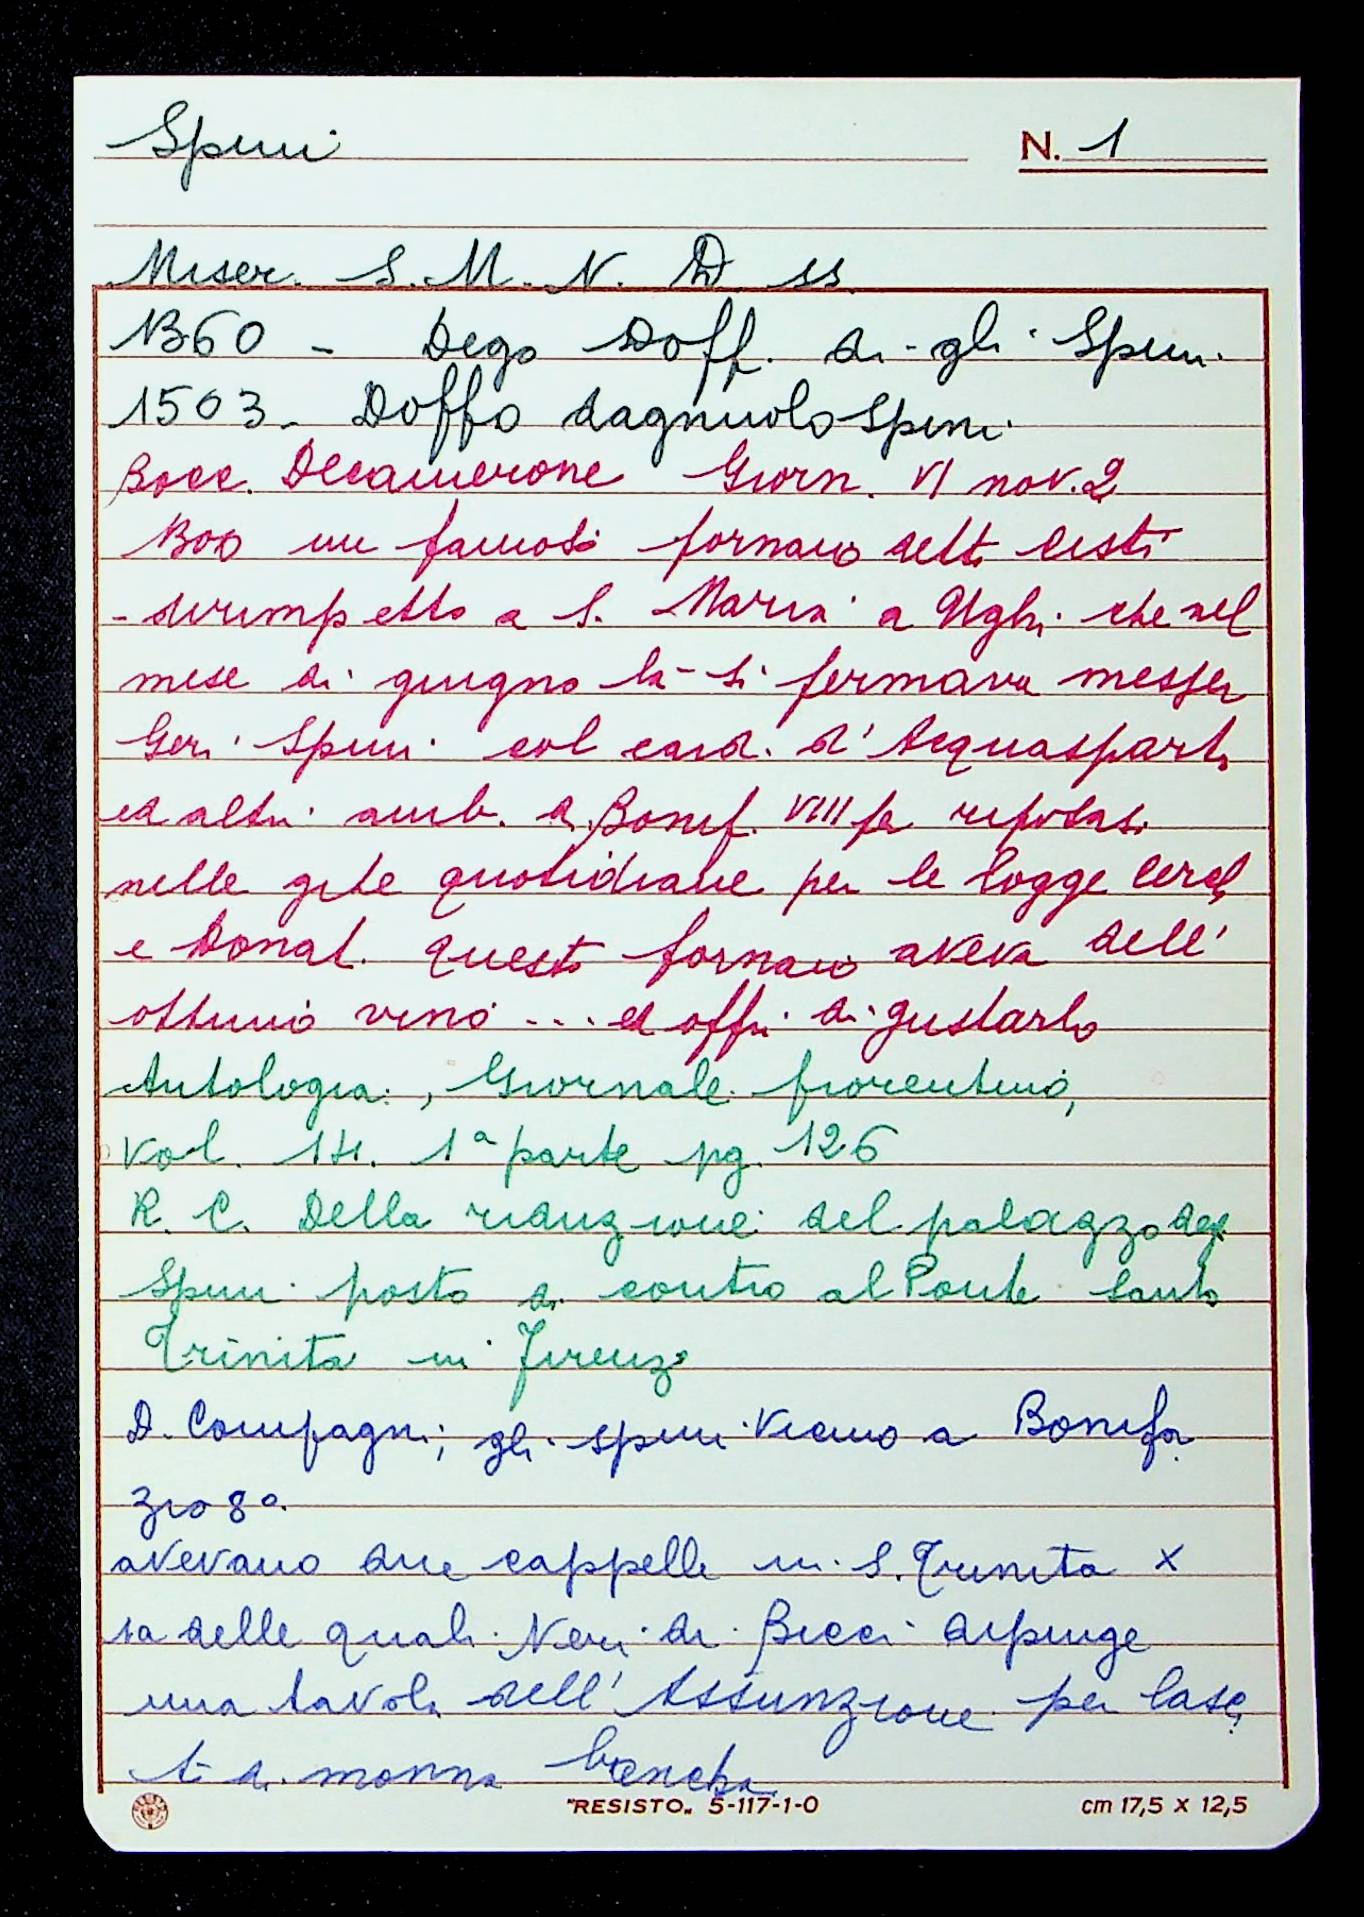 Spini N. 1
Miser. S. M. N. D. ss.
1360 - Dego Doff. di gli Spini
1503 - Doffo dagniolo Spini
Bocc. Decamerone Giorn. VI nov. 2
1300 un famoso fornaio detto Cisti
- dirimpetto a S. Maria a Ughi che nel
mese di giugno là si fermava messer
Geri Spini col card. d'Acquasparta
ed altri amb. di Bonif. VIII per riposarsi
nelle gite quotidiane per le logge Cerchi
e Donat. questo fornaio aveva dell'
ottimo vino ... ed offrì di gustarlo
Antologia, Giornale fiorentino,
vol. 14. 1ª parte pg. 126
R. C. Della riduzione del palazzo degli
Spini posto di contro al Ponte Santo
Trinita in Firenze
D. Compagni; gli Spini a Bonifa
zio 8º.
avevano due cappelle in S. Trinita x
1a delle quali Neri di Bicci dipinge
una tavola dell'Assunzione per lasc
to di monna
"RESISTO" 5-117-1-0 cm 17,5 x 12,5